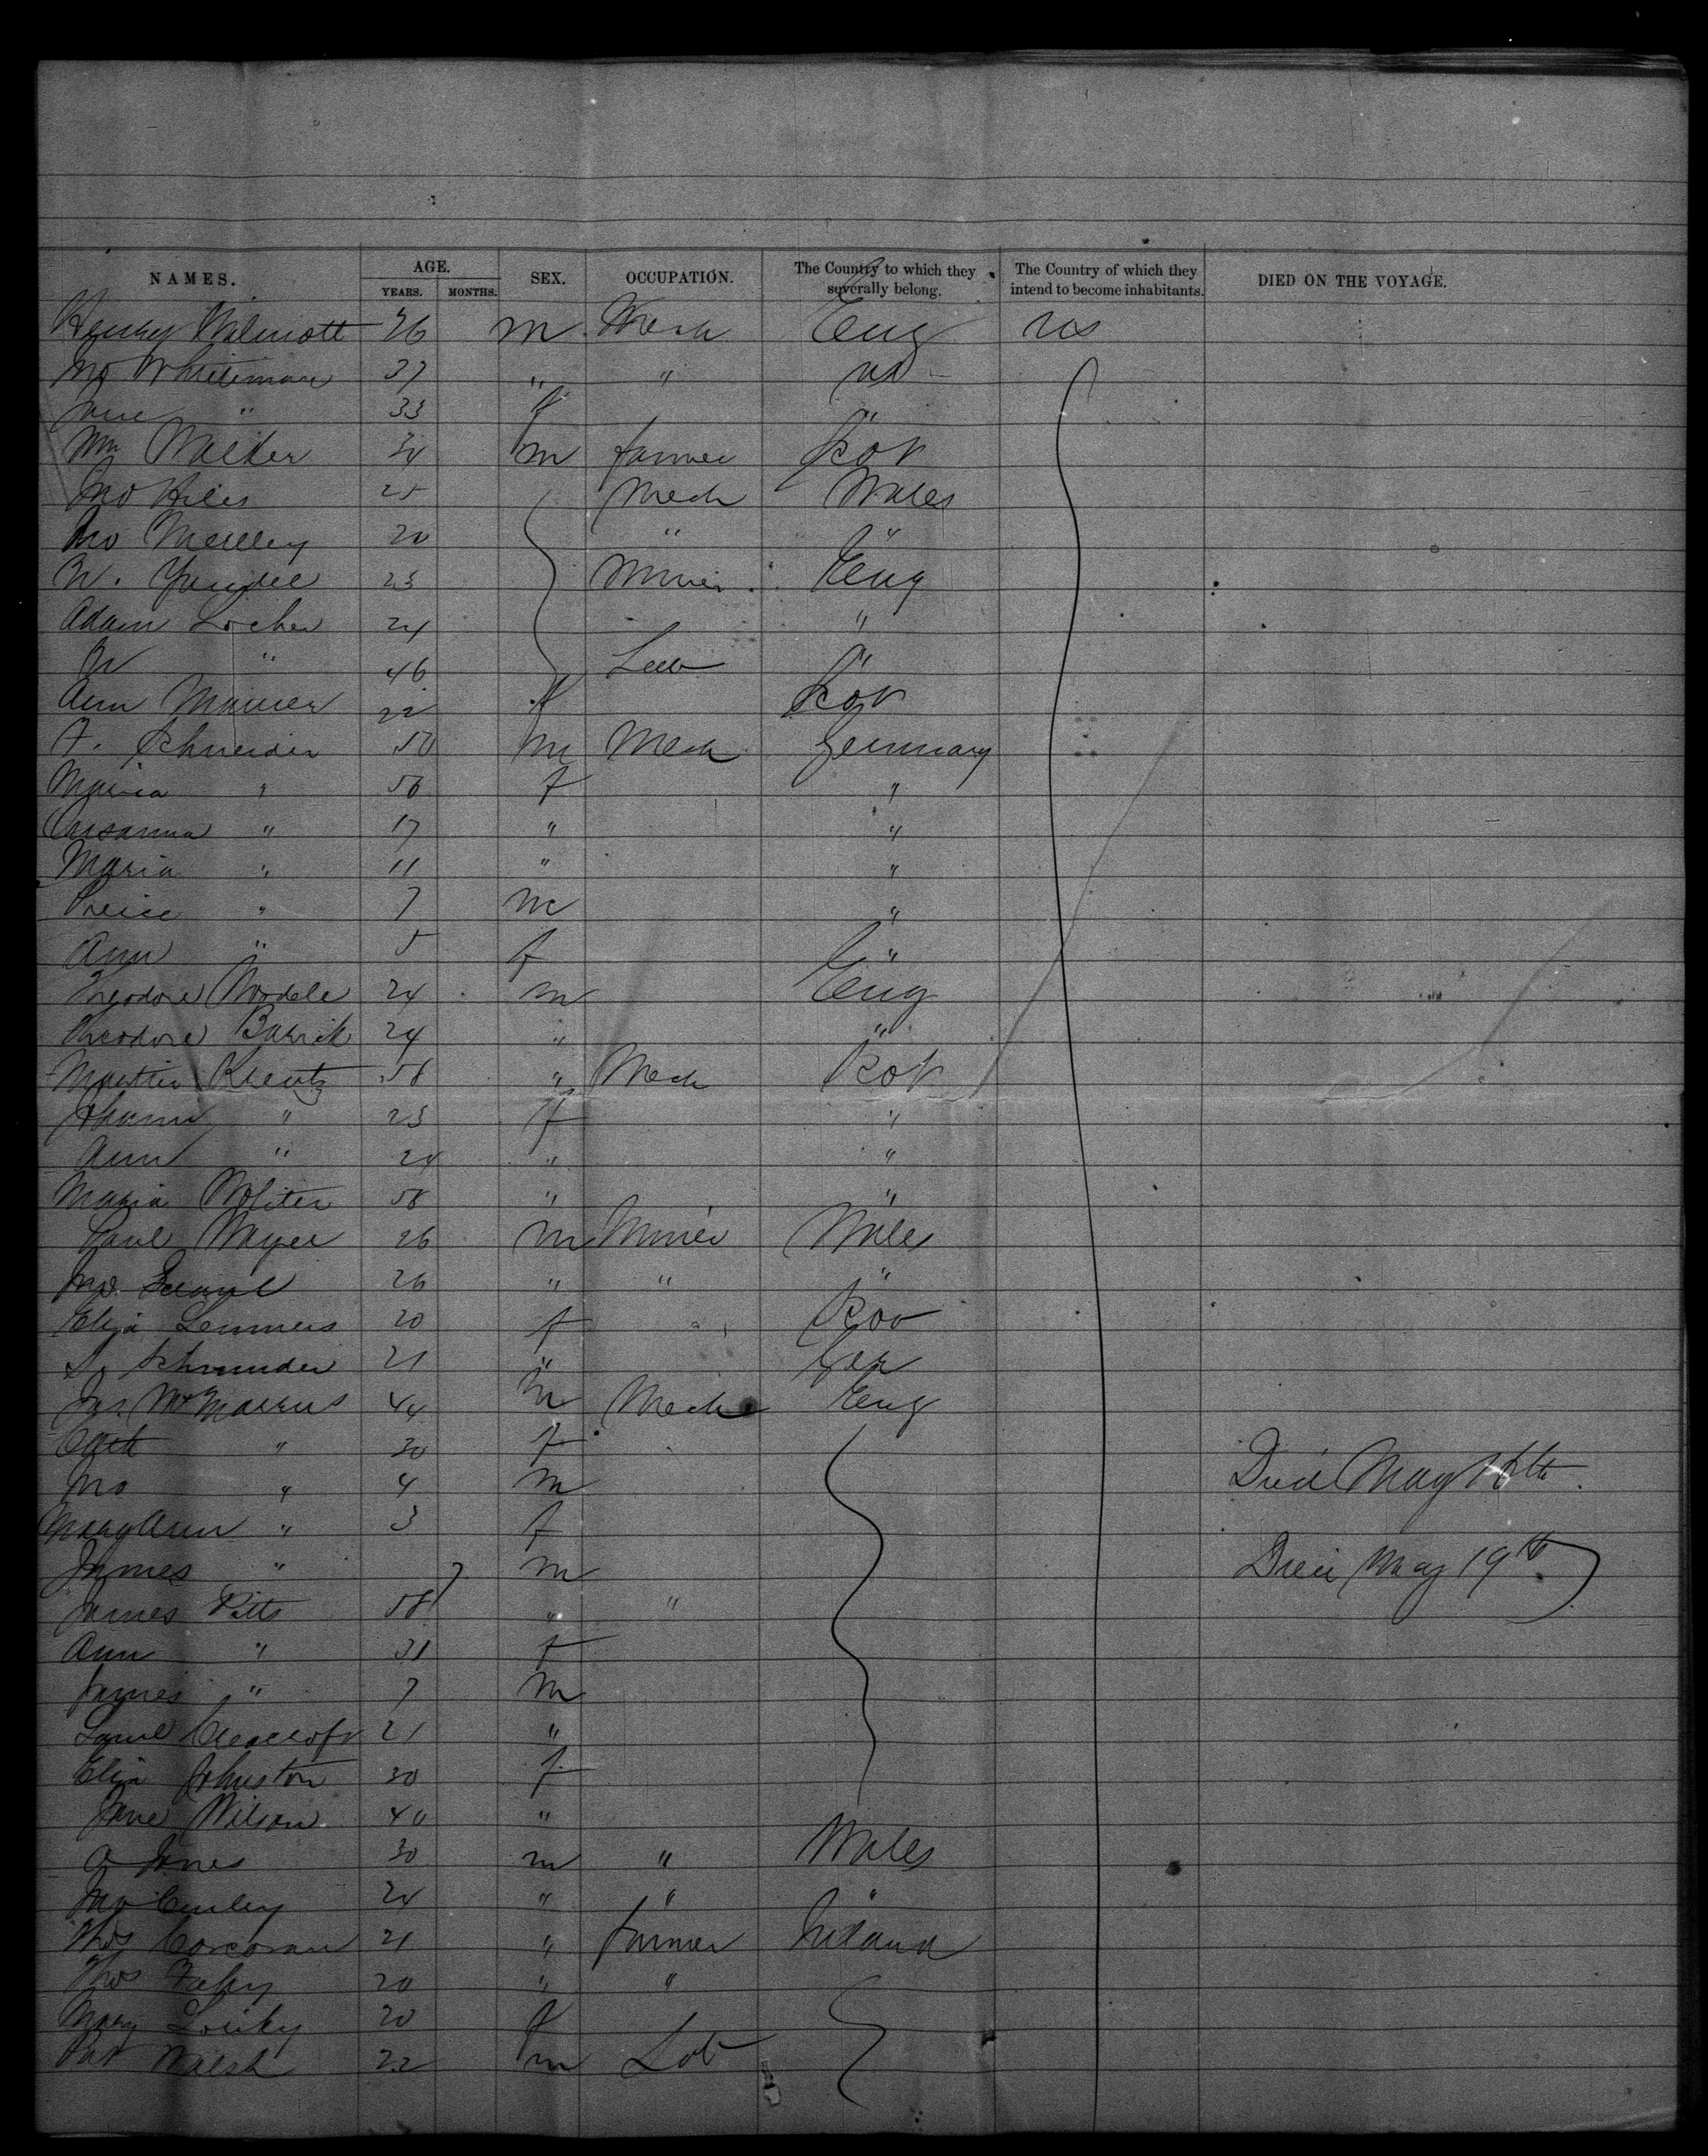 NAMES. AGE. SEX. OCCUPATION. The Country to which they severally belong. The Country of which they intend to become inhabitants. DIED ON THE VOYAGE.
YEARS. MONTHS.
Henry Wilmott 26 m Mech Eng US
Jno Whiteman 37 " " US
Jane " 33 f "
Wm Walker 34 m farmer Scot
Jno Hiles 25 Mech Wales
Jno 20 " "
W. 23 Miner Eng
Adam Locher 24 "
W " 46 Lab "
Ann 22 f Scot
F. Schneider 50 m Mech Germany
Maria " 50 f "
Susanna " 17 " "
Maria " 11 " "
" 7 m "
Ann " 5 f "
Theodore 24 m Eng
Theodore Barrick 24 " "
Krentz 58 " Mech Scot
Johann " 23 f "
Ann " 24 " "
Maria 58 " "
Paul Mayer 26 m Miner Wales
Jno. 26 " " "
Eliza Lemmers 20 f Scot
Schneider 21 " Ger
Jas. 44 m Mech Eng
Cath " 30 f
Jno " 4 m Died May 16th.
Mary Ann " 3 f
James " 7 m Died May 19th.
James Pitts 58 " "
Ann " 31 f
James " 7 m
Saml 21 "
Eliza Johnston 30 f
Jane Wilson 40 "
A Jones 30 m " Wales
Jno Curley 24 " " "
Thos Corcoran 21 " farmer Ireland
Thos Fahy 20 " "
Mary 20 f
Pat Walsh 22 m Lab